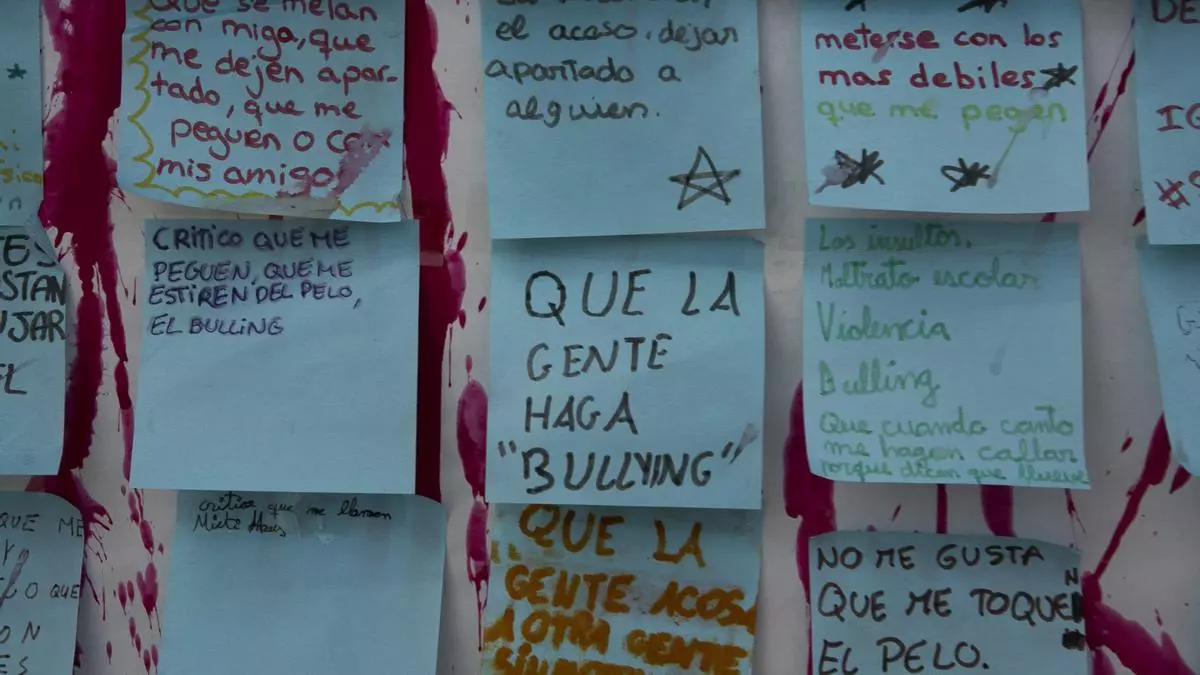 QUE se metan
con miga, que
me dejen apar-
tado, que me
peguen o con
mis amigo
el acaso, dejar
apartado a
alguien.
meterse con los
mas debiles
que me pegen
DE
IG
ES
STAN
UJAR
EL
CRITICO QUE ME
PEGUEN, QUE ME
ESTIREN DEL PELO,
EL BULLING
QUE LA
GENTE
HAGA
"BULLYING"
Los insultos.
Maltrato escolar
Violencia
Bulling
Que cuando canto
me hagen callar
porque dicen que llueve
QUE ME
Y
LO QUE
ON
ES
critico que me llamen
QUE LA
GENTE ACOSA
A OTRA GENTE
NO ME GUSTA
QUE ME TOQUEN
EL PELO.